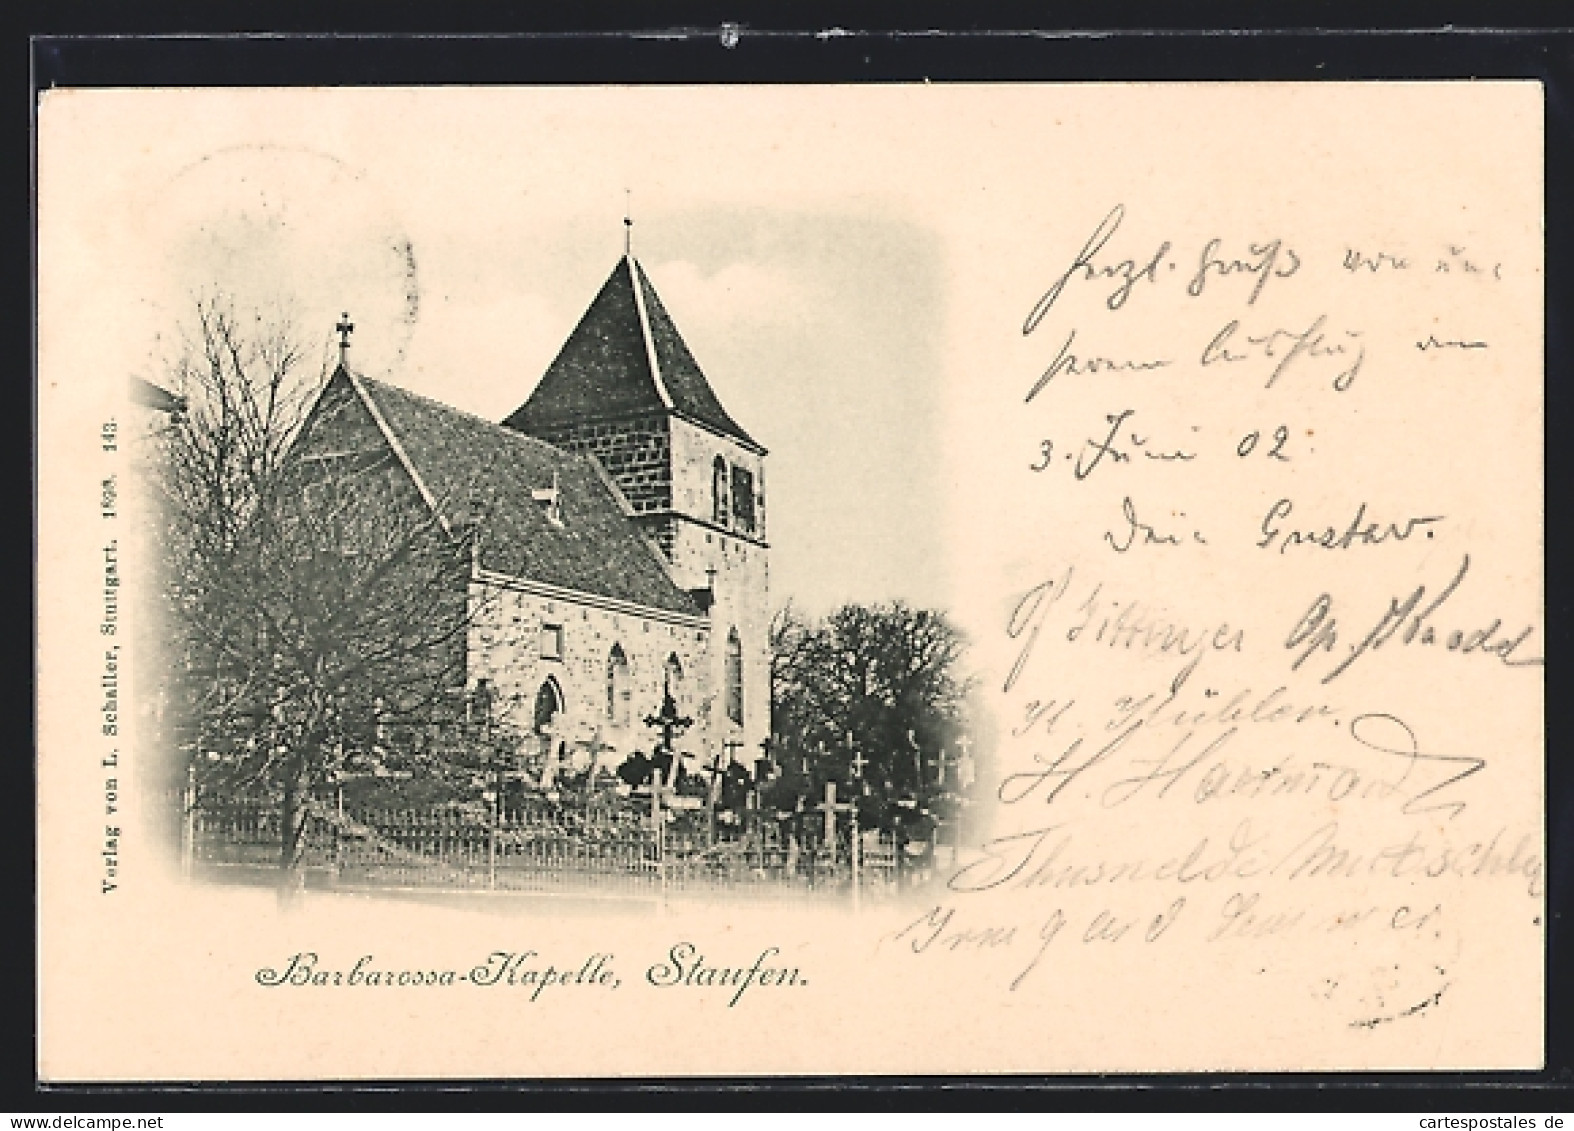 Verlag von L. Schaller, Stuttgart. 1898. 143.
Barbarossa-Kapelle, Staufen.
Herzl. Gruß von un-
serem Ausflug am
3. Juni 02.
Dein Gustav.
H. Hartmann
Thusnelde
Irmgard
www.cartespostales.de
cartespostales de